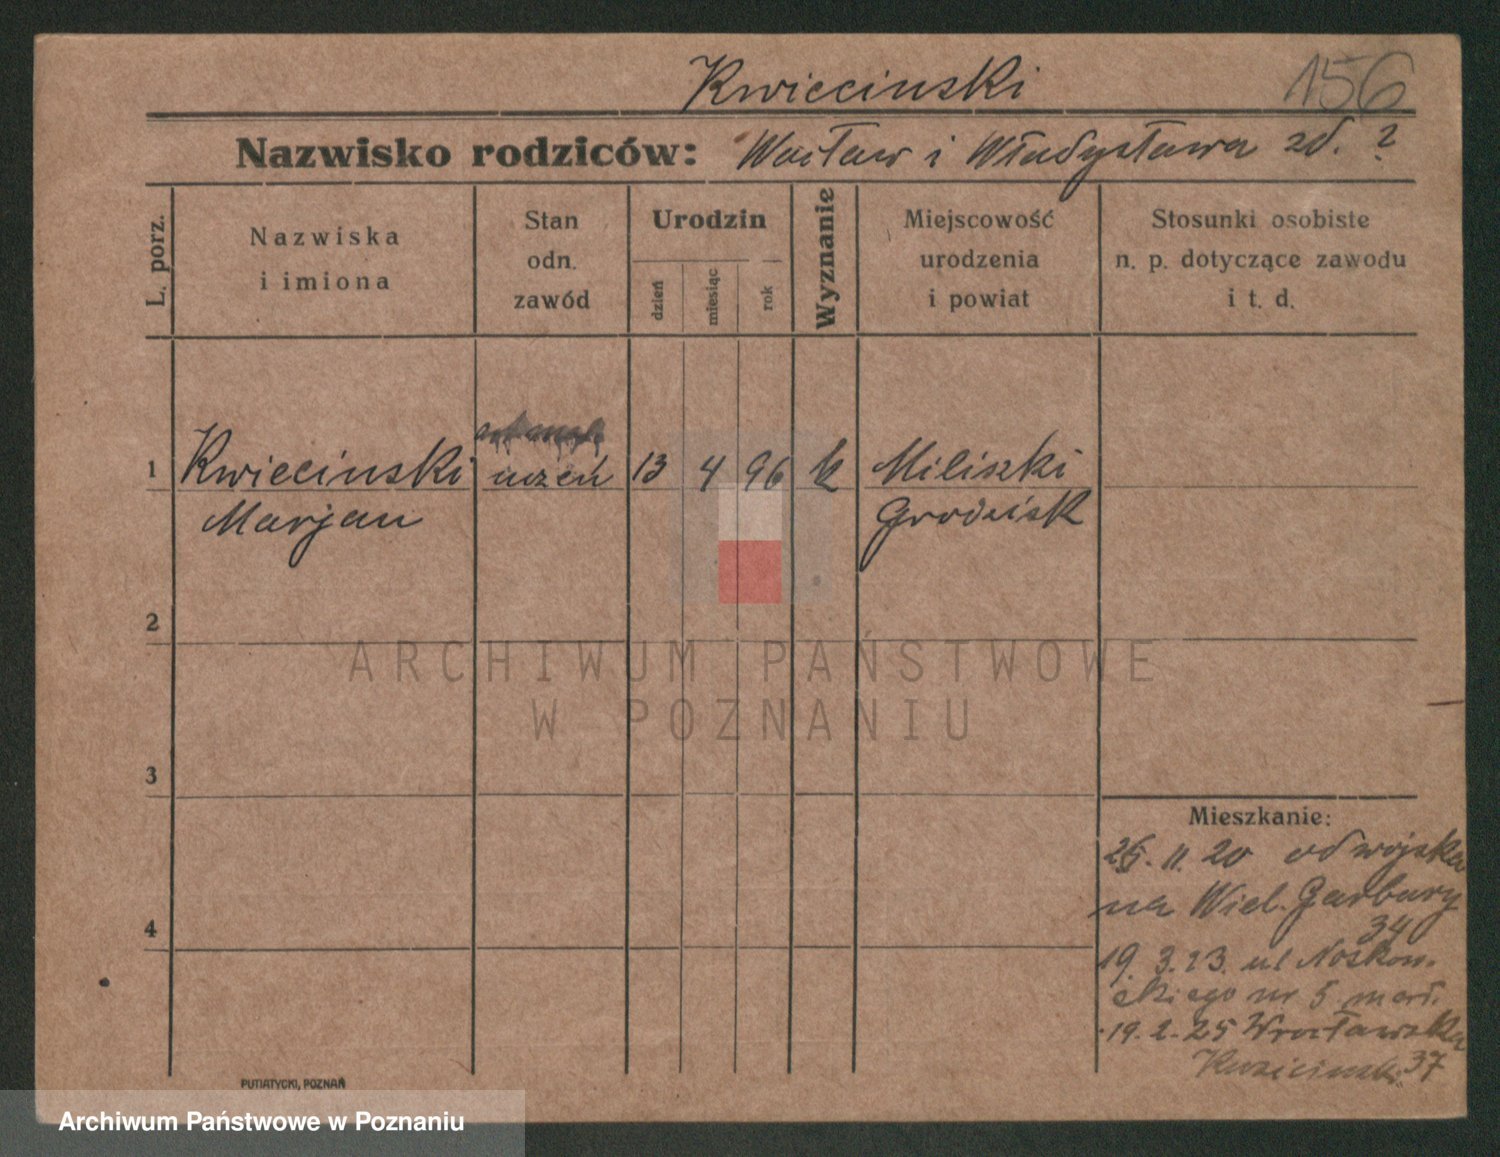 Kwiecinski
156
Nazwisko rodziców: Wacław i Władysława zd. ?
L. porz.
Nazwiska
i imiona
Stan
odn.
zawód
Urodzin
dzień
miesiąc
rok
Wyznanie
Miejscowość
urodzenia
i powiat
Stosunki osobiste
n. p. dotyczące zawodu
i t. d.
1
Kwiecinski
Marjan
uczeń
13
4
96
k
Miliszki
Grodzisk
2
ARCHIWUM PAŃSTWOWE
W POZNANIU
3
Mieszkanie:
25. 11. 20 od wojska
na Wiel. Garbary
34
4
19. 3. 23. ul Noskow-
skiego nr 5
19. 2. 25 Wrocławska
37
Kwiecinski
PUTIATYCKI, POZNAŃ
Archiwum Państwowe w Poznaniu